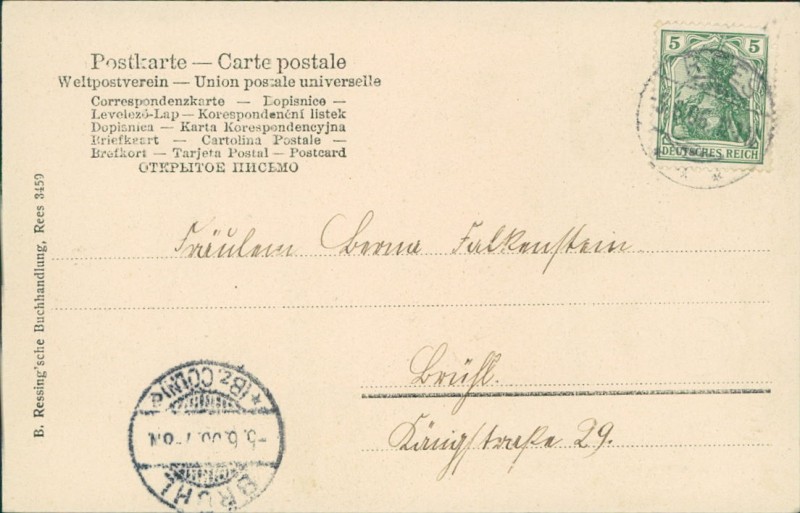 Postkarte — Carte postale
Weltpostverein — Union postale universelle
Correspondenzkarte — Dopisnice —
Levelező-Lap — Korespondenční listek
Dopisnica — Karta Korespondencyjna
Briefkaart — Cartolina Postale —
Brefkort — Tarjeta Postal — Postcard
ОТКРЫТОЕ ПИСЬМО
5 5
DEUTSCHES REICH
REES
B. Ressing'sche Buchhandlung, Rees 3459
Fräulein Berna Falkenstein
Brühl.
Königstraße 29.
BRÜHL
* (Bz. CÖLN)